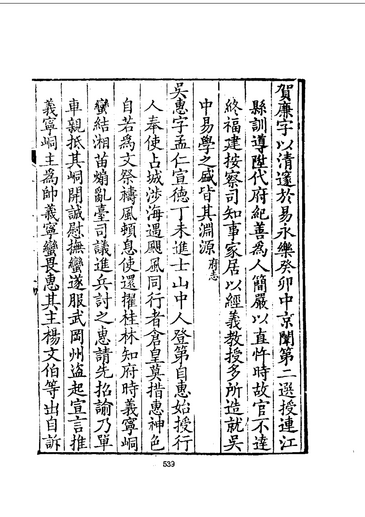 賀廉字以清邃於易永樂癸卯中京闈第二選授連江
縣訓導陞代府紀善為人簡嚴以直忤時故官不達
終福建按察司知事家居以經義教授多所造就吳
中易學之盛皆其淵源府志
吳惠字孟仁宣德丁未進士山中人登第自惠始授行
人奉使占城涉海遇颶風同行者倉皇莫措惠神色
自若為文祭禱風頓息使還擢桂林知府時義寧峒
蠻結湘苗煽亂臺司議進兵討之惠請先招諭乃單
車親抵其峒開誠慰撫蠻遂服武岡州盜起宣言推
義寧峒主為帥義寧蠻畏惠其主楊文伯等出自訴
539